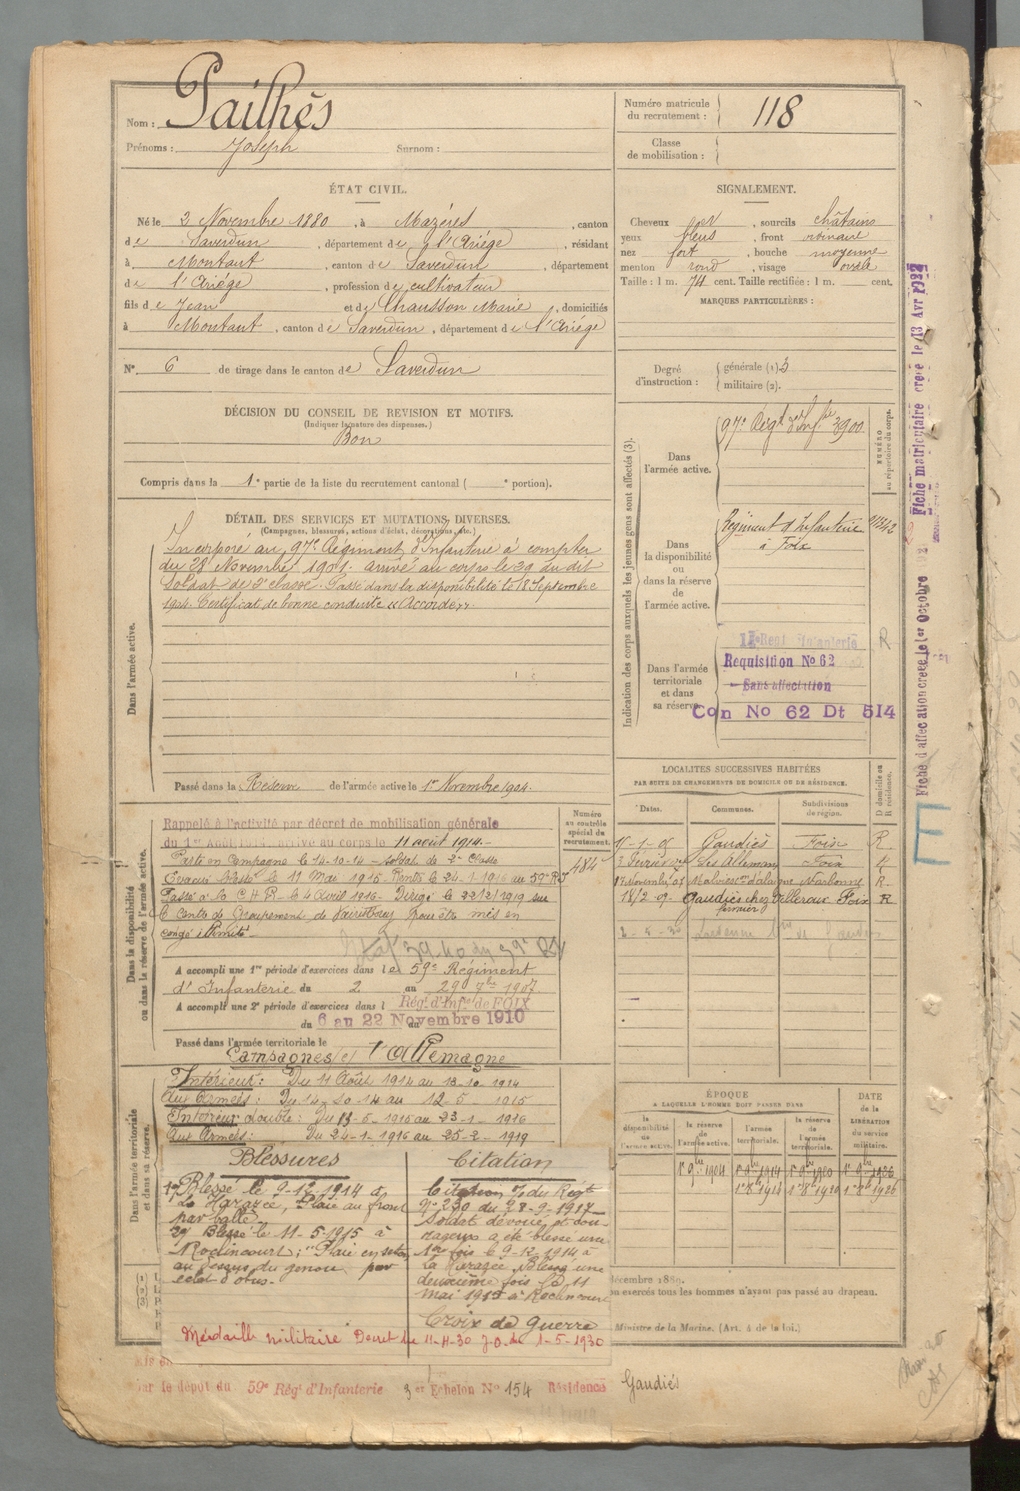 Nom : Pailhès
Prénoms : Joseph Surnom :
Numéro matricule du recrutement : 118
Classe de mobilisation :
ÉTAT CIVIL.
Né le 2 Novembre 1880, à Mazères, canton
de Saverdun, département de l'Ariége, résidant
à Montaut, canton de Saverdun, département
de l'Ariége, profession de cultivateur
fils de Jean et de Chausson Marie, domiciliés
à Montaut, canton de Saverdun, département de l'Ariége
N° 6 de tirage dans le canton de Saverdun
SIGNALEMENT.
Cheveux , sourcils châtains
yeux bleus, front ordinaire
nez fort, bouche moyenne
menton rond, visage ovale
Taille : 1 m. 74 cent. Taille rectifiée : 1 m. cent.
MARQUES PARTICULIÈRES :
Degré d'instruction : générale (1) 3
militaire (2).
DÉCISION DU CONSEIL DE REVISION ET MOTIFS.
(Indiquer la nature des dispenses.)
Bon
Compris dans la 1e partie de la liste du recrutement cantonal ( e portion).
DÉTAIL DES SERVICES ET MUTATIONS DIVERSES.
(Campagnes, blessures, actions d'éclat, décorations, etc.)
Dans l'armée active.
Incorporé au 97e Régiment d'Infanterie à compter
du 28 Novembre 1901. arrivé au corps le 29 du dit
Soldat de 2e classe. Passé dans la disponibilité le 18 Septembre
1904. Certificat de bonne conduite "Accordé".
Passé dans la Réserve de l'armée active le 1er Novembre 1904.
Indication des corps auxquels les jeunes gens sont affectés (3).
NUMÉRO au répertoire du corps.
Dans l'armée active.
97e Régt d'Infie 3900
Dans la disponibilité ou dans la réserve de l'armée active.
Régiment d'Infanterie
à Foix
Dans l'armée territoriale et dans sa réserve.
Requisition No 62
Sans affectation
Con No 62 Dt 514
R
Fiche matriculaire creee le 13 Avr
Fiche d'affectation creee le 1er Octobre
Dans la disponibilité ou dans la réserve de l'armée active.
Numéro au contrôle spécial du recrutement.
484
Rappelé à l'activité par décret de mobilisation générale
du 1er Août 1914. arrivé au corps le 11 août 1914.
Parti en Campagne le 14-10-14 - soldat de 2e Classe
Evacué blessé le 11 Mai 1915. Rentré le 24-1-1916 au 59e R.I
Passé à la C H R le 4 Avril 1916. Dirigé le 22/2/1919 sur
le Centre de Groupement de pour être mis en
congé illimité.
A accompli une 1re période d'exercices dans le 59e Régiment
d'Infanterie du 2 au 29 1907
A accompli une 2e période d'exercices dans l Régt d'Infie de FOIX
du 6 au 22 Novembre 1910
Passé dans l'armée territoriale le
LOCALITÉS SUCCESSIVES HABITÉES
PAR SUITE DE CHANGEMENTS DE DOMICILE OU DE RÉSIDENCE.
D domicile ou R résidence.
Dates. Communes. Subdivisions de région.
Gaudiès Foix R
Foix R
Narbonne R
Gaudiès chez Foix R
fermier
Dans l'armée territoriale et dans sa réserve.
Campagnes c/ l'Allemagne
Intérieur : Du 11 Août 1914 au 13-10-1914
Aux Armées : Du 14-10-14 au 12-5-1915
Intérieur double : Du 13-5-1915 au 23-1-1916
Aux Armées : Du 24-1-1916 au 25-2-1919
Blessures
1° Blessé le 9-12-1914 à
La Harazée, Plaie au front
par balle.
2° Blessé le 11-5-1915 à
Roclincourt ; "Plaie en séton
au dessus du genou par
éclat d'obus.
Citation
Citation du Régt
n° 230 du 28-9-1917
Soldat dévoué et cou-
rageux a été blessé une
1ère fois le 9-12-1914 à
La Harazée. Blessé une
deuxième fois le 11
mai 1915 à Roclincourt
Croix de Guerre
Médaille militaire Decret du 11-4-30 J.O. du 1-5-1930
ÉPOQUE
A LAQUELLE L'HOMME DOIT PASSER DANS
la disponibilité de l'armée active.
la réserve de l'armée active.
l'armée territoriale.
la réserve de l'armée territoriale.
DATE de la LIBÉRATION du service militaire.
1er 9bre 1904 1er 9bre 1914 1er 9bre 1920 1er 9bre 1926
décembre 1889.
on exercés tous les hommes n'ayant pas passé au drapeau.
Ministre de la Marine. (Art. 4 de la loi.)
par le dépôt du 59e Rég. d'Infanterie 3e Echelon No 154 Résidence Gaudiès